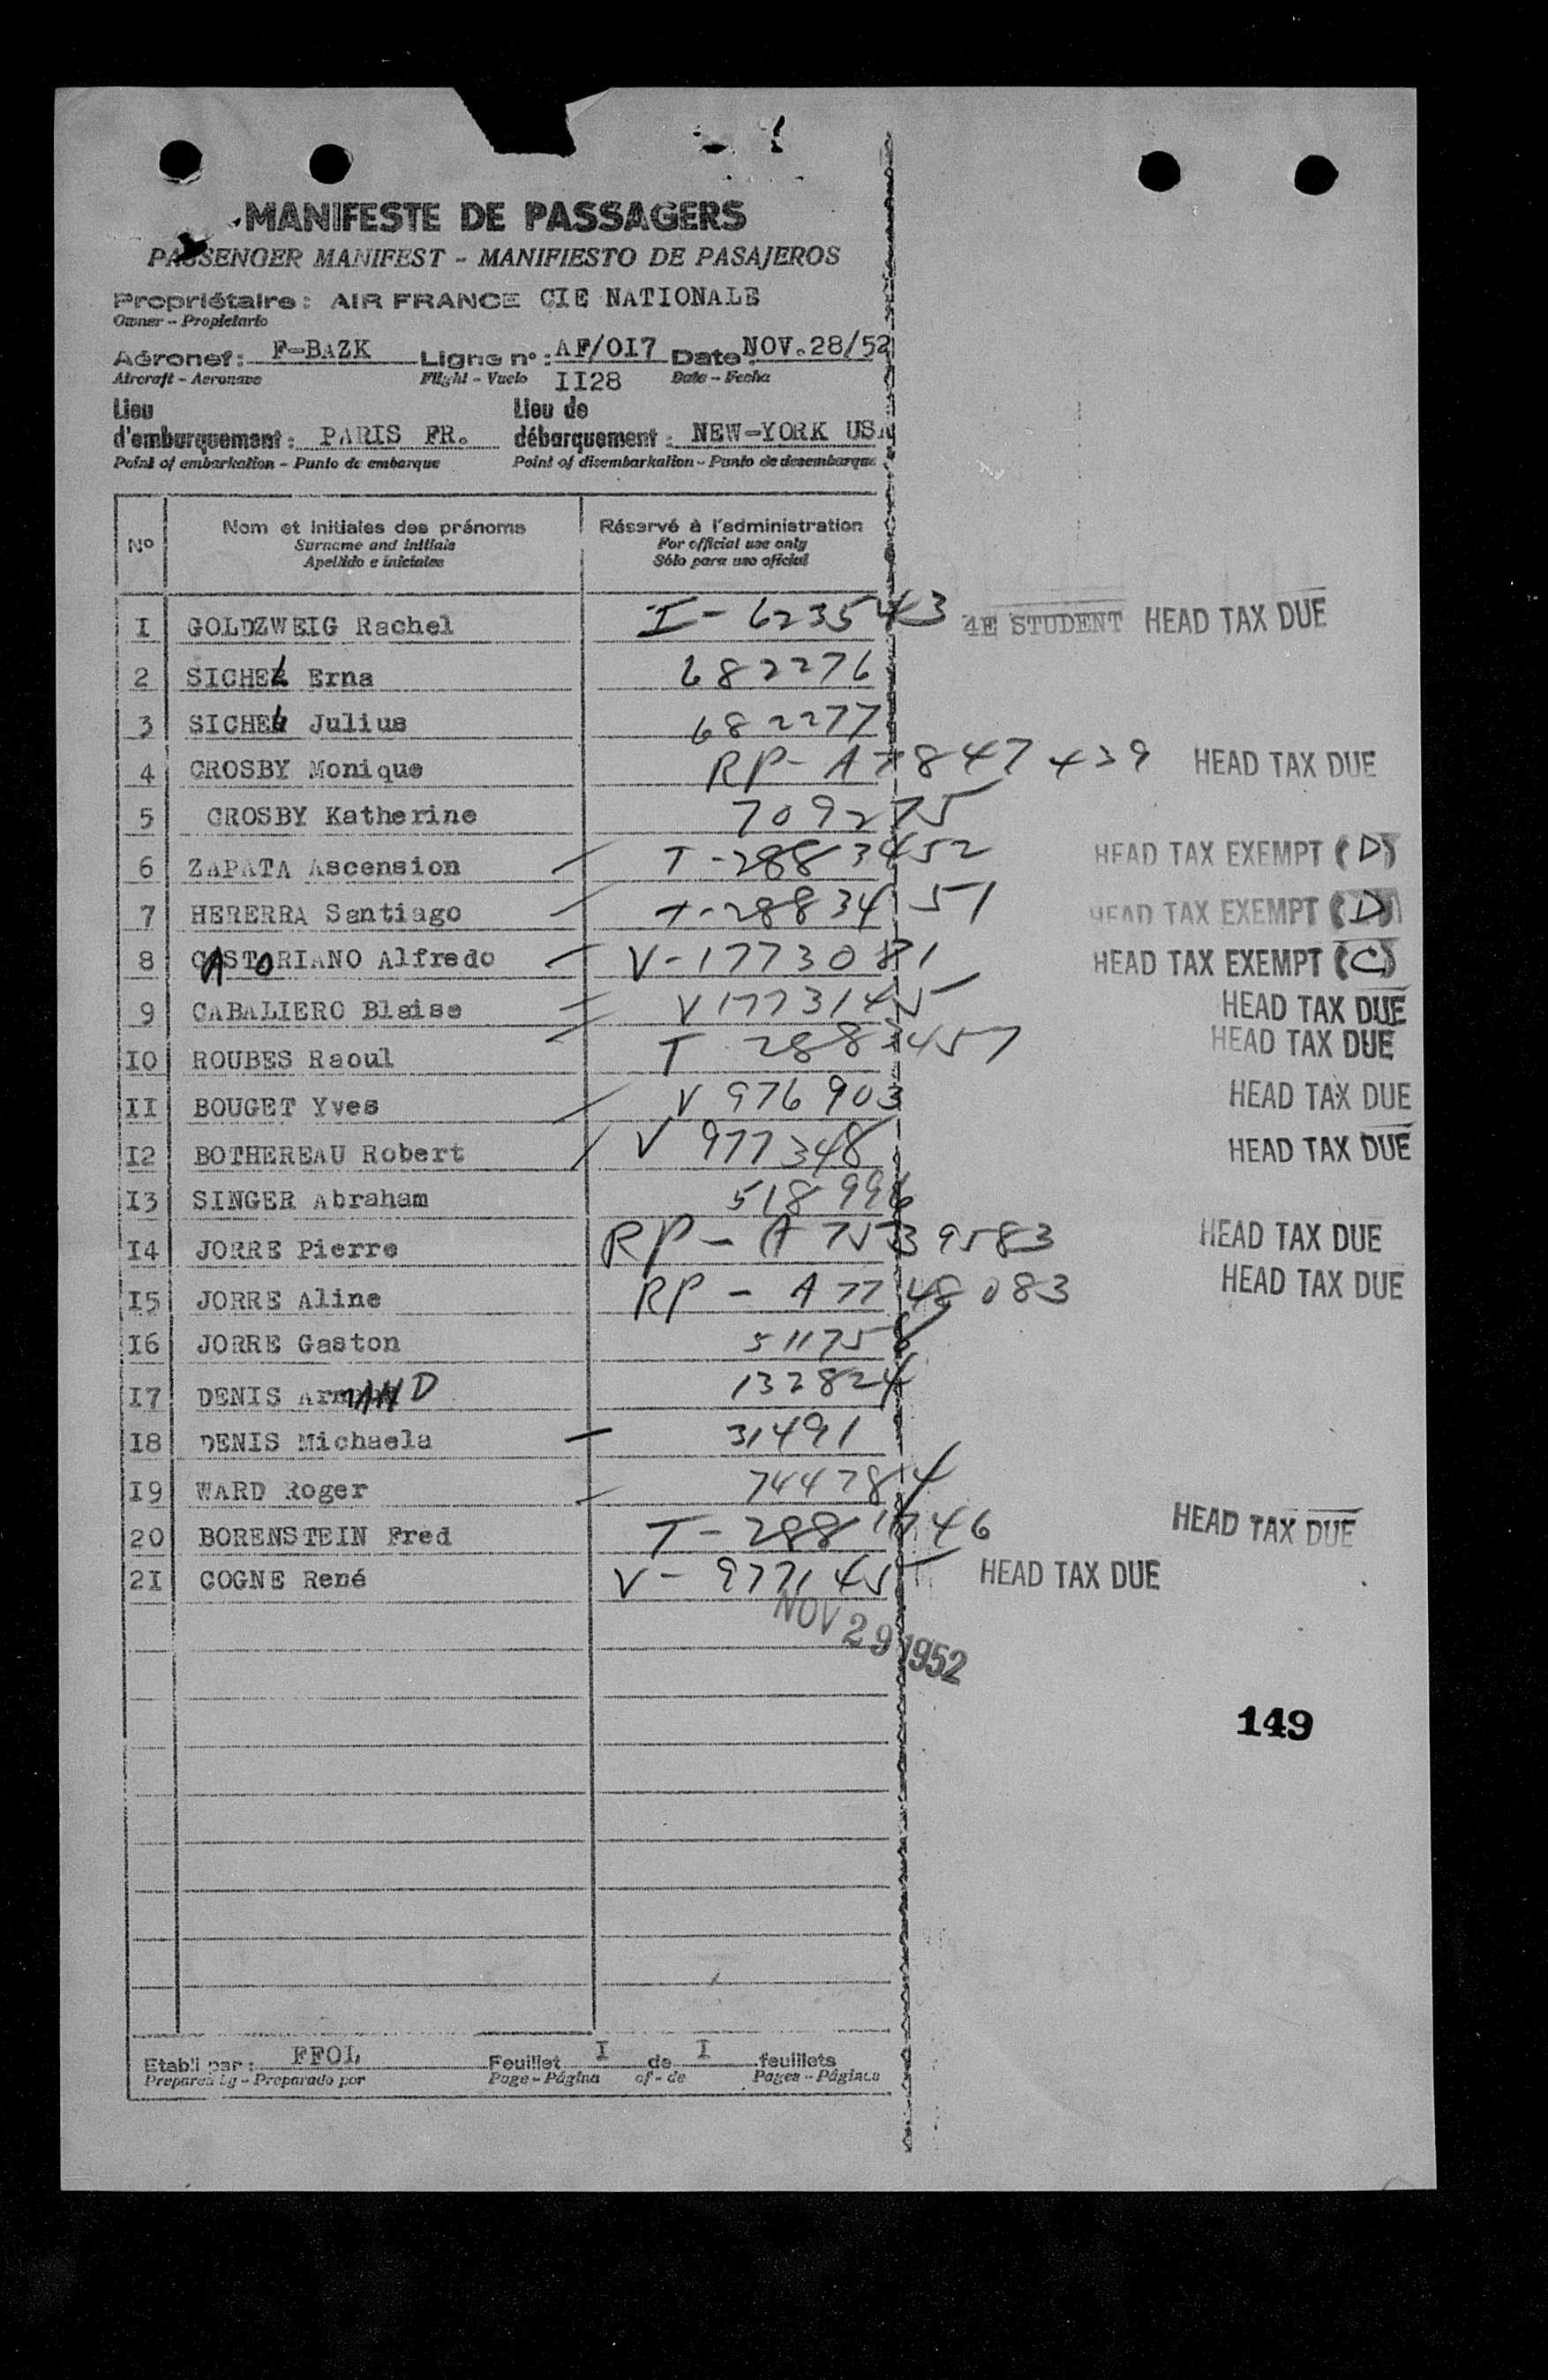 MANIFESTE DE PASSAGERS
PASSENGER MANIFEST - MANIFIESTO DE PASAJEROS
Propriétaire: AIR FRANCE CIE NATIONALE
Owner - Propietario
Aéronef: F-BAZK Ligne n°: AF/OI7 Date: NOV.28/52
Aircraft - Aeronave Flight - Vuelo II28 Date - Fecha
Lieu d'embarquement: PARIS FR. Lieu de débarquement: NEW-YORK USA
Point of embarkation - Punto de embarque Point of disembarkation - Punto de desembarque
N° Nom et initiales des prénoms Réservé à l'administration
Surname and initials For official use only
Apellido e iniciales Sólo para uso oficial
I GOLDZWEIG Rachel I-623543 4E STUDENT HEAD TAX DUE
2 SICHEL Erna 682276
3 SICHEL Julius 682277
4 CROSBY Monique RP-A7847439 HEAD TAX DUE
5 CROSBY Katherine 709275
6 ZAPATA Ascension T-2883452 HEAD TAX EXEMPT (D)
7 HERERRA Santiago T-2883451 HEAD TAX EXEMPT (D)
8 CASTORIANO Alfredo V-1773081 HEAD TAX EXEMPT (C)
9 CABALIERO Blaise V1773145 HEAD TAX DUE
IO ROUBES Raoul T 2883457 HEAD TAX DUE
II BOUGET Yves V 976903 HEAD TAX DUE
I2 BOTHEREAU Robert V 977348 HEAD TAX DUE
I3 SINGER Abraham 518996
I4 JORRE Pierre RP-A7539583 HEAD TAX DUE
I5 JORRE Aline RP-A7748083 HEAD TAX DUE
I6 JORRE Gaston 511758
I7 DENIS ArmAND 132824
I8 DENIS Michaela 31491
I9 WARD Roger 744784
20 BORENSTEIN Fred T-2881746 HEAD TAX DUE
2I COGNE René V-977145 HEAD TAX DUE
NOV 29 1952
149
Etabli par: FFOL Feuillet I de I feuillets
Prepared by - Preparado por Page - Página of - de Pages - Páginas